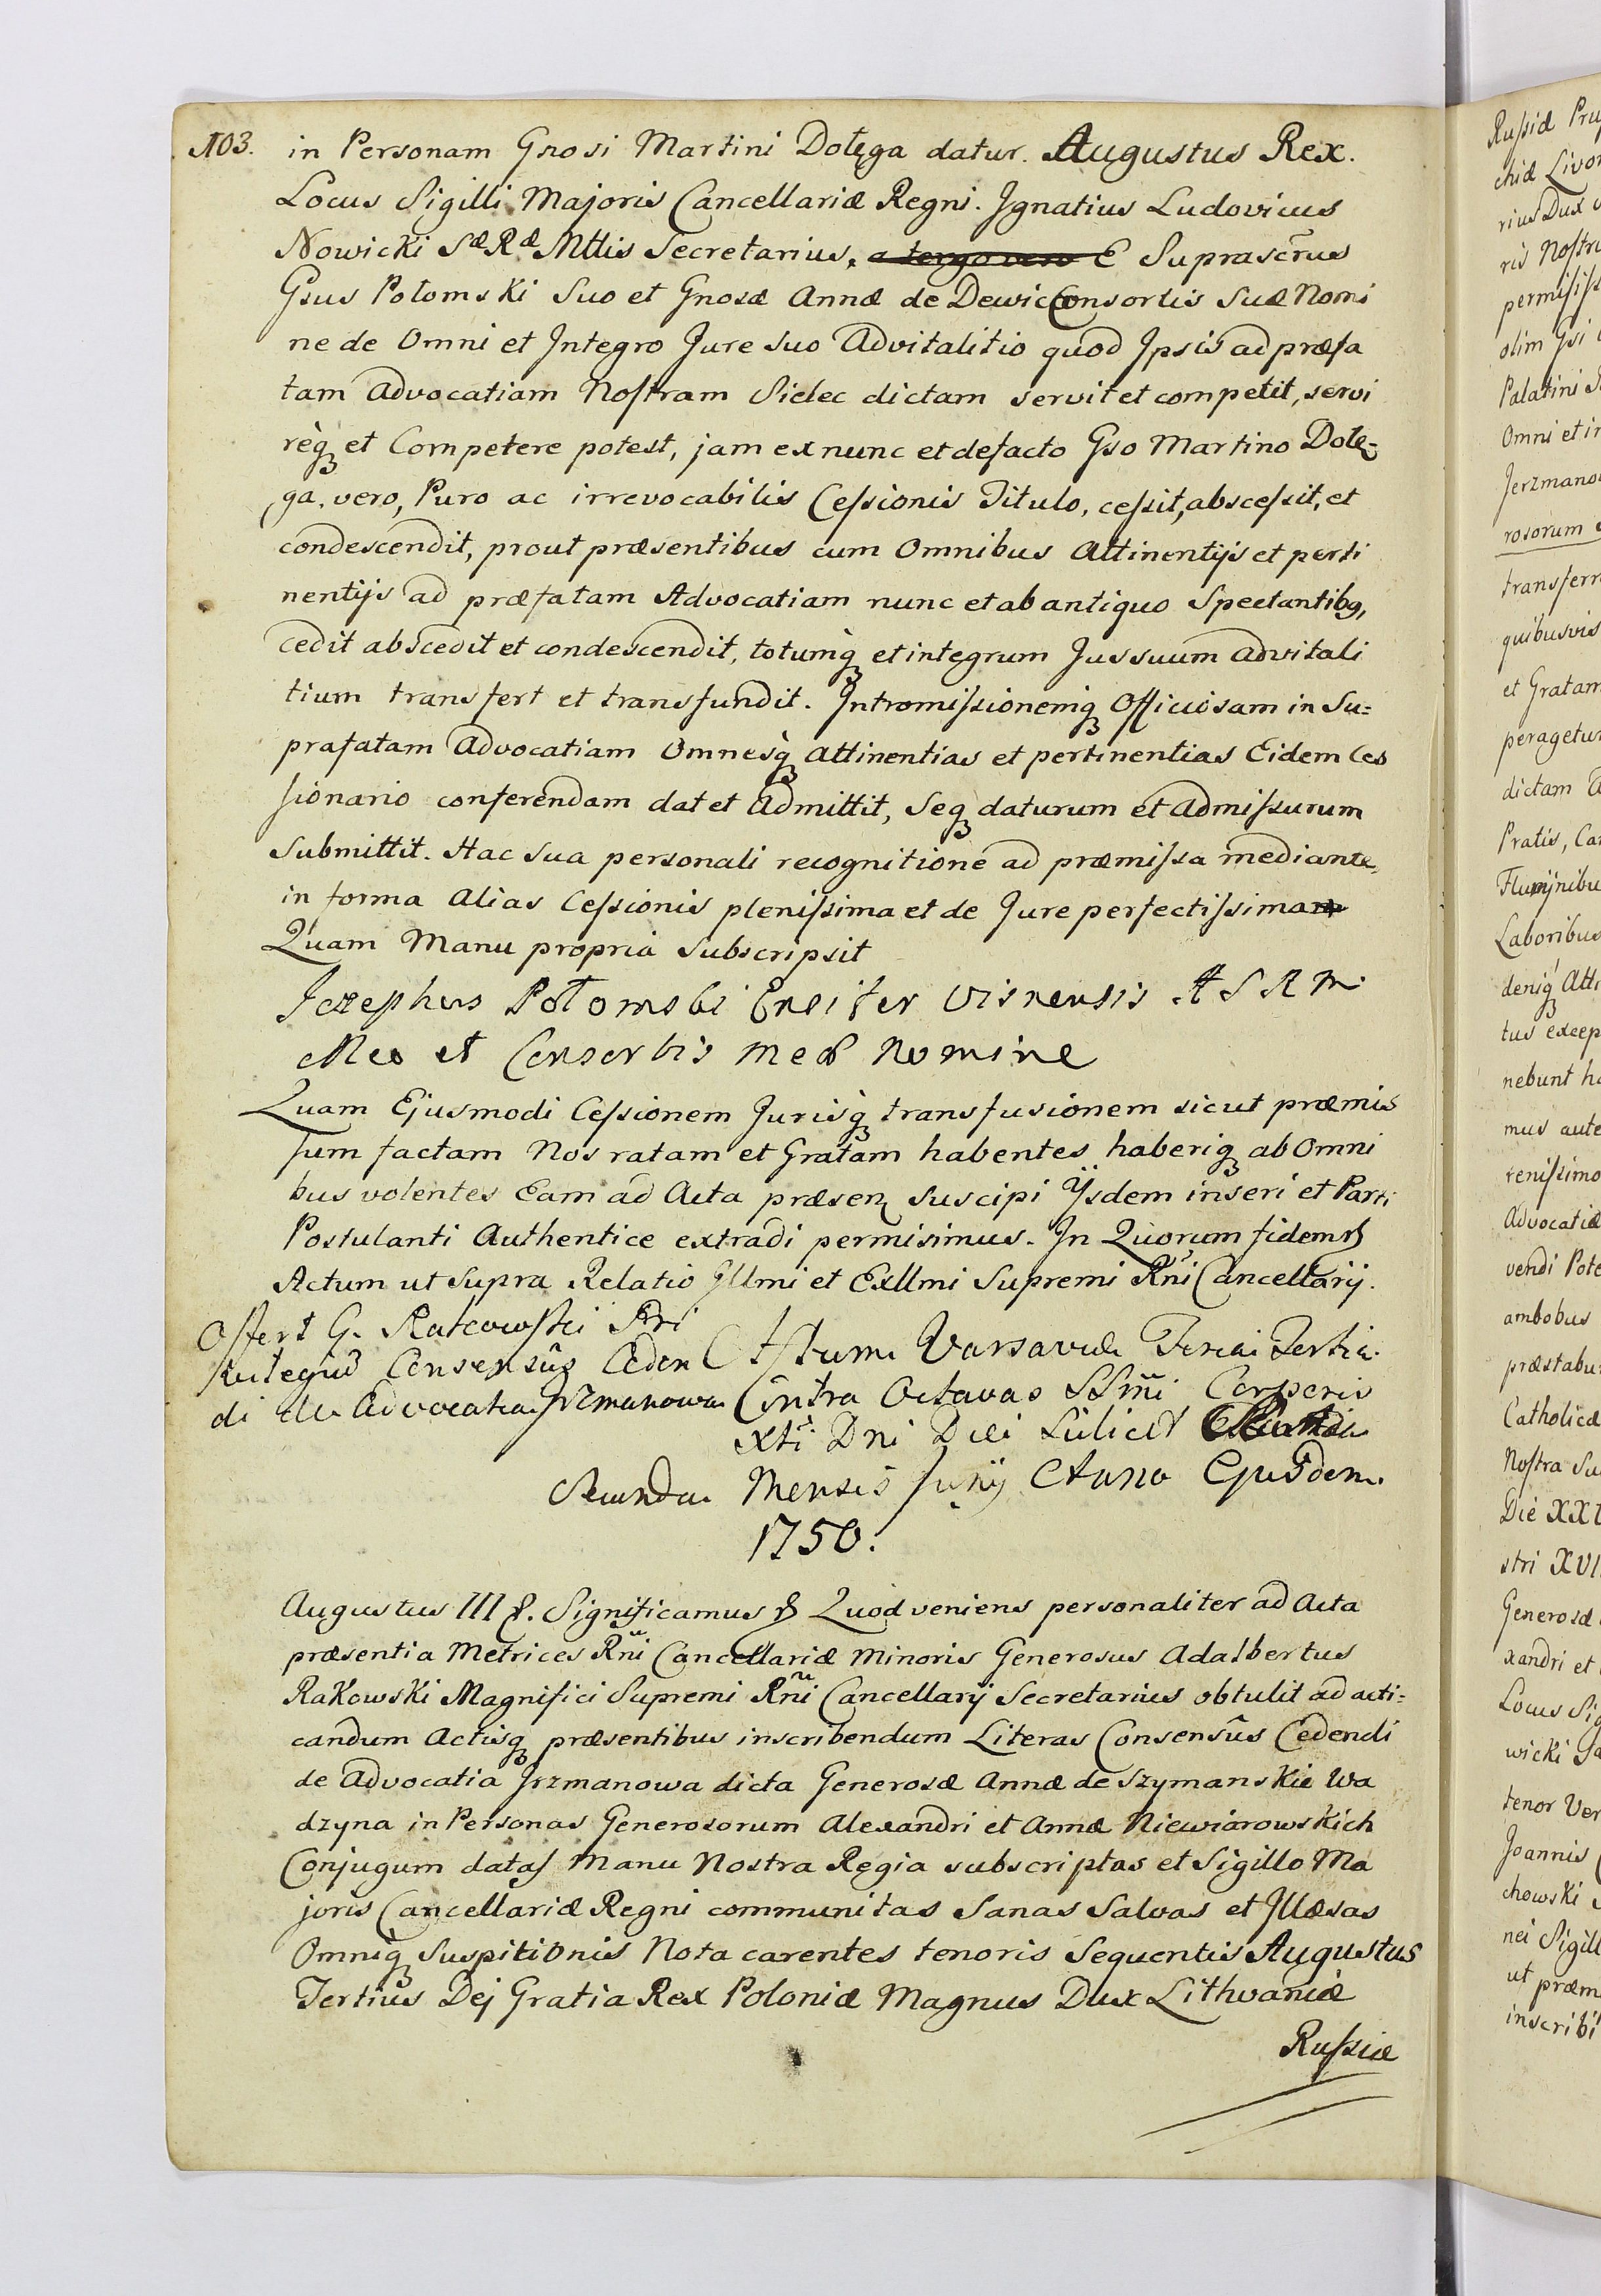 103. in Personam Gnosi Martini Dołęga datur. Augustus Rex.
Locus Sigilli Majoris Cancellariæ Regni. Ignatius Ludovicus
Nowicki Sæ Ræ Mttis Secretarius. a tergo vero E Suprascrus
Gsus Potomski Suo et Gnosæ Annæ de Dewic Consortis Suæ Nomi
ne de Omni et Integro Jure Suo Advitalitio quod Ipsis ad præfa
tam Advocatiam Nostram Sielec dictam servit et competit, servi
reqꝫ et Competere potest, jam ex nunc et de facto Gso Martino Dołę=
ga. vero, Puro ac irrevocabilis Cessionis Titulo, cessit, abscessit, et
condescendit, prout præsentibus cum Omnibus Attinentijs et perti
nentijs ad præfatam Advocatiam nunc et ab antiquo Spectantibꝫ,
cedit abscedit et condescendit, totumqꝫ et integrum Jus suum advitali
tium transfert et transfundit. Intromissionemqꝫ Officiosam in Su=
prafatam Advocatiam Omnesqꝫ attinentias et pertinentias Eidem Ces
sionario conferendam dat et Admittit, Seqꝫ daturum et Admissurum
Submittit. Hac Sua personali recognitione ad præmissa mediante,
in forma Alias Cessionis plenissima et de Jure perfectissima
Quam Manu propria Subscripsit
Jozephus Potomski Ensifer Visnensis A S R M
Meo et Consortis meæ Nomine
Quam Ejusmodi Cessionem Jurisqꝫ transfusionem sicut præmis
sum factam Nos ratam et Gratam habentes haberiqꝫ ab Omni
bus volentes Eam ad Acta præsenꝫ Suscipi Ijsdem inseri et Parti
Postulanti Authentice extradi permisimus. In Quorum fidem
Actum ut Supra Relatio Illmi et Exllmi Supremi Rñi Cancellarij.
Offert G. Rakowski Lri
Rutegius Consensûs Ceden
di de Advocatia Jrzmanowa
Actum Varsaviæ Feria Tertia
Intra Octavas SSmi Corporis
Xti Dni Diei Silicet
Secunda Mensis Junÿ Anno Ejusdem
1750.
Augustus III. Significamus Quod veniens personaliter ad Acta
præsentia Metrices Rñi Cancellariæ Minoris Generosus Adalbertus
Rakowski Magnifici Supremi Rñi Cancellarij Secretarius obtulit ad acti=
candum Actisqꝫ præsentibus inscribendum Literas Consensûs Cedendi
de Advocatia Jrzmanowa dicta Generosæ Annæ de Szymanskie Wa
dzyna in Personas Generosorum Alexandri et Annæ Niewiarowskich
Conjugum datas Manu Nostra Regia subscriptas et Sigillo Ma
joris Cancellariæ Regni communitas Sanas Salvas et Illæsas
Omniqꝫ Suspitionis Nota carentes tenoris Sequentis Augustus
Tertius Dej Gratia Rex Poloniæ Magnus Dux Lithvaniæ
Russiæ